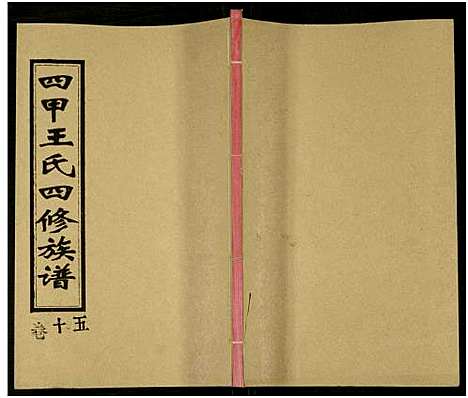 四甲王氏四修族谱
卷十五